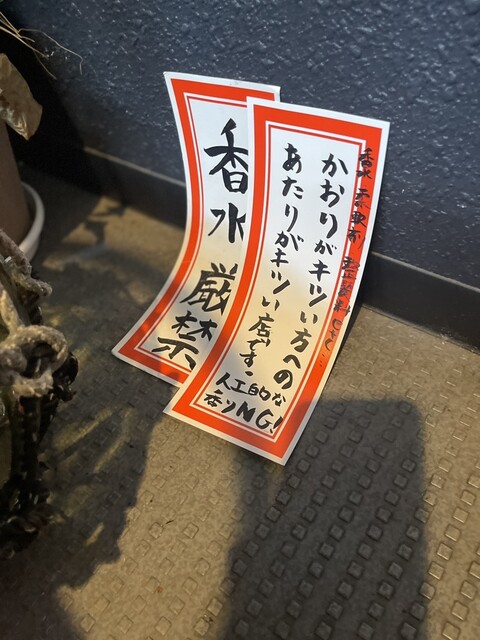 香水 柔軟剤 整髪料 etc...
かおりがキツい方への
あたりがキツい店です。
人工的な
香りNG!
香水
厳禁